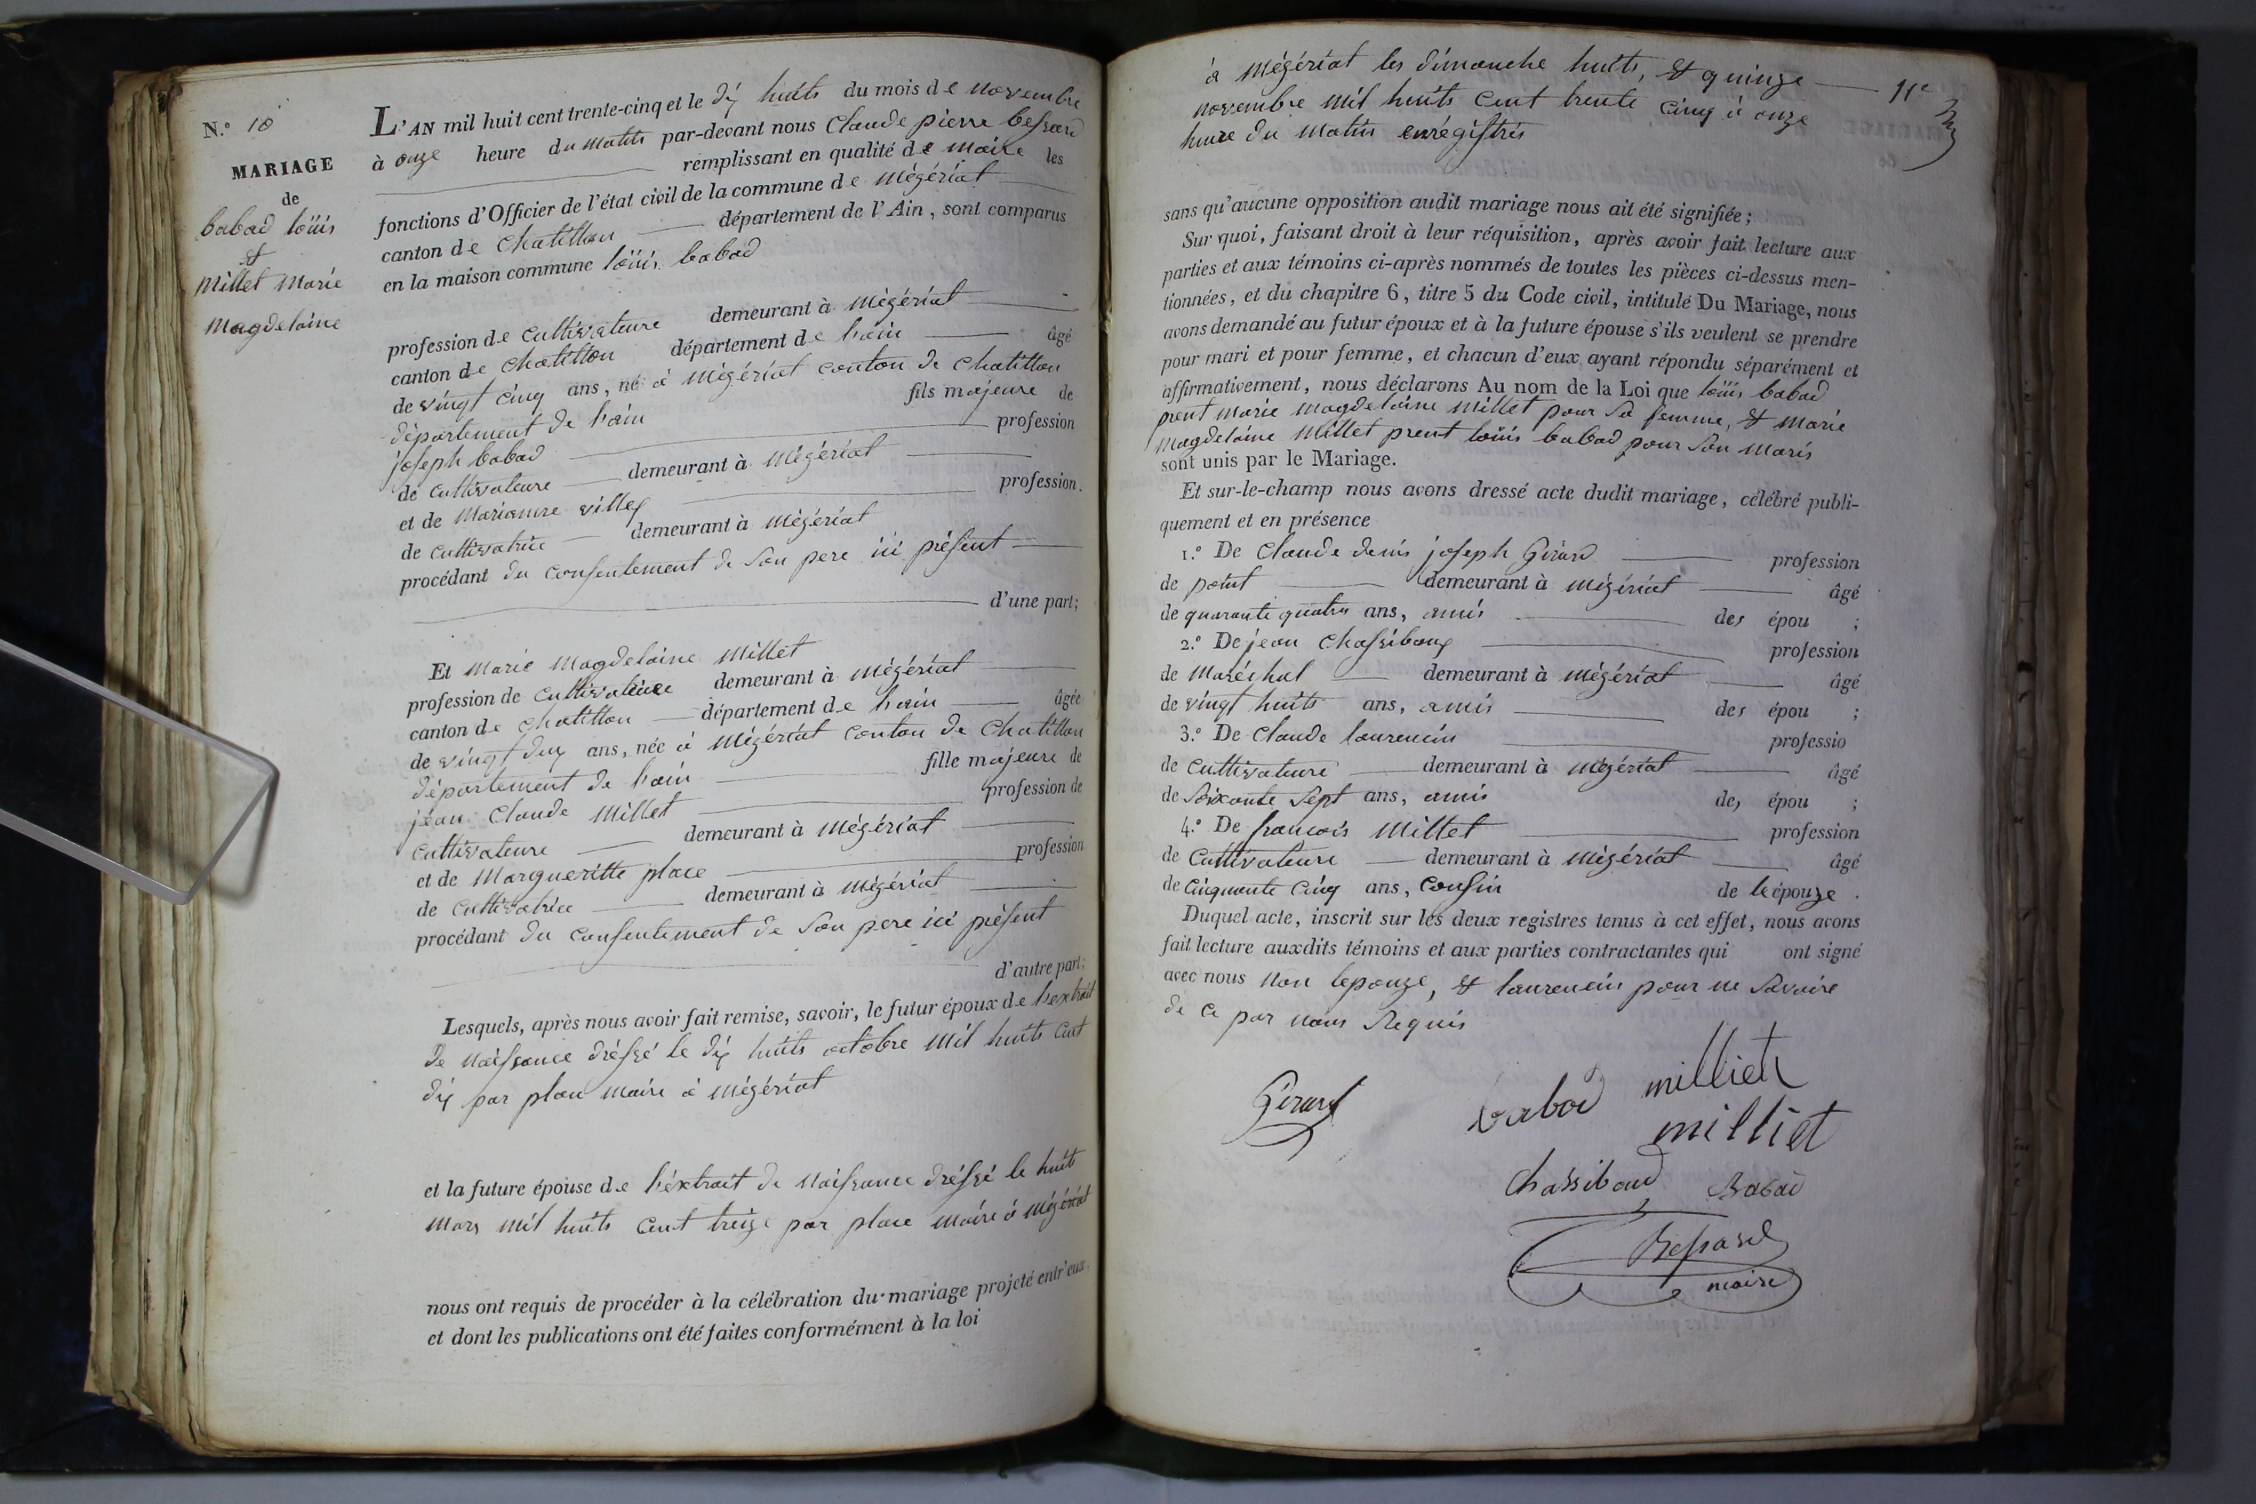 N.° 10
MARIAGE
de
babad loüis
et
Millet Marie
Magdelaine
L'AN mil huit cent trente-cinq et le dix huits du mois de novembre
à onze heure du matin par-devant nous Claude pierre bessard
remplissant en qualité de maire les
fonctions d'Officier de l'état civil de la commune de mégériat
canton de Chatillon département de l'Ain, sont comparus
en la maison commune loüis babad
profession de cultivateure demeurant à mégériat
canton de chatillon département de l'ain âgé
de vingt cinq ans, né à mégériat conton de chatillon
département de l'ain fils majeure de
joseph babad profession
de cultivateure demeurant à mégériat
et de Marianne villey profession
de cultivatrice demeurant à mégériat
procédant du consentement de son pere ici présent
d'une part;
Et marie magdelaine millet
profession de cultivatrice demeurant à mégériat
canton de chatillon département de l'ain âgée
de vingt dux ans, née à mégériat conton de chatillon
département de l'ain fille majeure de
jean Claude Millet profession de
cultivateure demeurant à mégériat
et de Margueritte place profession
de cultivatrice demeurant à mégériat
procédant du consentement de son pere ici présent
d'autre part;
Lesquels, après nous avoir fait remise, savoir, le futur époux de l'extrait
de naissance dréssé le dix huits octobre mil huits cent
dix par place maire à mégériat
et la future épouse de l'éxtrait de naissance dréssé le huits
mars mil huits cent treize par place maire à mégériat
nous ont requis de procéder à la célébration du mariage projeté entr'eux
et dont les publications ont été faites conformément à la loi
à mégériat les dimanche huits, et quinze
novembre mil huits cent trente cinq à onze
heure du matin enrégistrés
11e
sans qu'aucune opposition audit mariage nous ait été signifiée;
Sur quoi, faisant droit à leur réquisition, après avoir fait lecture aux
parties et aux témoins ci-après nommés de toutes les pièces ci-dessus men-
tionnées, et du chapitre 6, titre 5 du Code civil, intitulé Du Mariage, nous
avons demandé au futur époux et à la future épouse s'ils veulent se prendre
pour mari et pour femme, et chacun d'eux ayant répondu séparément et
affirmativement, nous déclarons Au nom de la Loi que loüis babad
prent marie magdelaine millet pour sa femme, et marie
magdelaine millet prent loüis babad pour son maris
sont unis par le Mariage.
Et sur-le-champ nous avons dressé acte dudit mariage, célébré publi-
quement et en présence
1.° De Claude denis joseph Girard profession
de demeurant à mégériat âgé
de quarante quatre ans, amis des épou ;
2.° De jean chassiboux profession
de maréchal demeurant à mégériat âgé
de vingt huits ans, amis des épou ;
3.° De Claude laurencin professio
de cultivateure demeurant à mégériat âgé
de soixante sept ans, amis des épou ;
4.° De francois millet profession
de cultivateure demeurant à mégériat âgé
de cinquente cinq ans, cousin de le épouze .
Duquel acte, inscrit sur les deux registres tenus à cet effet, nous avons
fait lecture auxdits témoins et aux parties contractantes qui ont signé
avec nous non lepouze, et laurencin pour ne savoire
de ce par nous Requis
Girard babad milliet
milliet
Chassiboud Babad
Bessard
maire